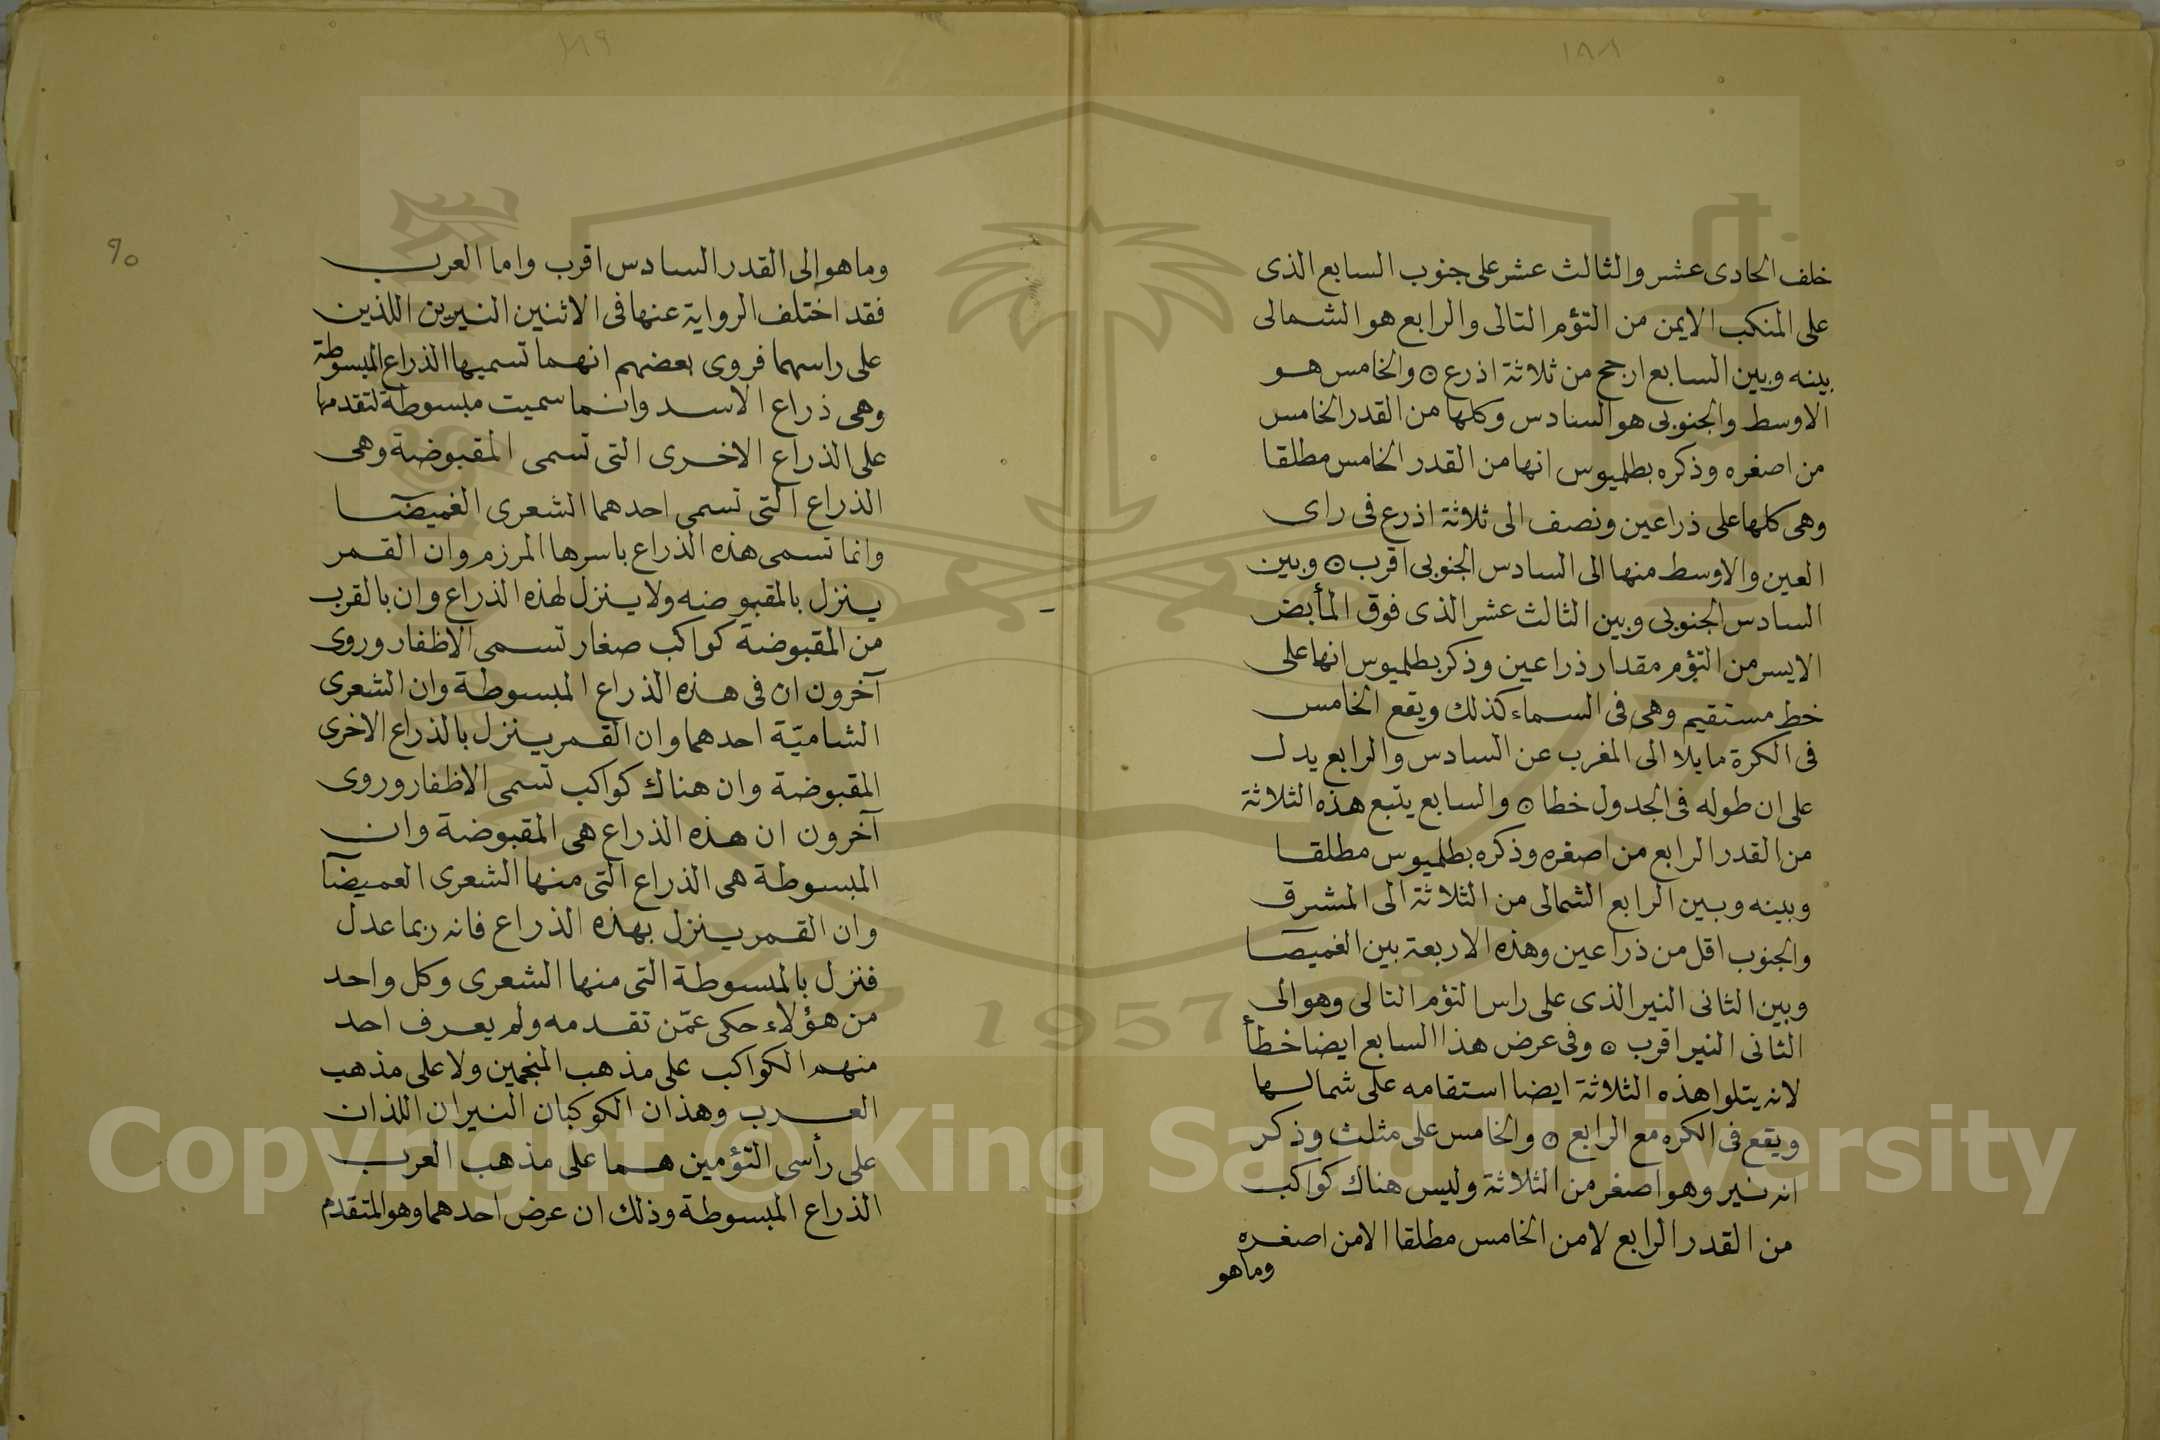 ١٨٨
خلف الحادى عشر والثالث عشر على جنوب السابع الذى
على المنكب الايمن من التؤم التالى والرابع هو الشمالى
بينه وبين السابع ارجح من ثلاثة اذرع ۞ والخامس هو
الاوسط والجنوبى هو السادس وكلها من القدر الخامس
من اصغره وذكره بطلميوس انها من القدر الخامس مطلقا
وهى كلها على ذراعين ونصف الى ثلاثة اذرع فى راى
العين والاوسط منها الى السادس الجنوبى اقرب ۞ وبين
السادس الجنوبى وبين الثالث عشر الذى فوق المأبض
الايسر من التؤم مقدار ذراعين وذكر بطلميوس انها على
خط مستقيم وهى فى السماء كذلك ويقع الخامس
فى الكرة مايلا الى المغرب عن السادس والرابع يدل
على ان طوله فى الجدول خطا ۞ والسابع يتبع هذه الثلاثة
من القدر الرابع من اصغره وذكره بطلميوس مطلقا
وبينه وبين الرابع الشمالى من الثلاثة الى المشرق
والجنوب اقل من ذراعين وهذه الاربعة بين الغميصا
وبين الثانى النير الذى على راس التؤم التالى وهو الى
الثانى النير اقرب ۞ وفى عرض هذا السابع ايضا خطأ
لانه يتلوا هذه الثلاثة ايضا استقامه على شمالها
ويقع فى الكره مع الرابع ۞ والخامس على مثلث وذكر
انه نير وهو اصغر من الثلاثة وليس هناك كواكب
من القدر الرابع لا من الخامس مطلقا الا من اصغره
وماهو
١٨٩
٩٥
وماهو الى القدر السادس اقرب واما العرب
فقد اختلف الرواية عنها فى الاثنين النيرين اللذين
على راسهما فروى بعضهم انهما تسميها الذراع المبسوطة
وهى ذراع الاسد وانما سميت مبسوطة لتقدمها
على الذراع الاخرى التى تسمى المقبوضة وهى
الذراع التى تسمى احدهما الشعرى الغميضا
وانما تسمى هذه الذراع باسرها المرزم وان القمر
ينزل بالمقبوضه ولا ينزل لهذه الذراع وان بالقرب
من المقبوضة كواكب صغار تسمى الاظفار وروى
آخرون ان فى هذه الذراع المبسوطة وان الشعرى
الشاميّة احدهما وان القمر ينزل بالذراع الاخرى
المقبوضة وان هناك كواكب تسمى الاظفار وروى
آخرون ان هذه الذراع هى المقبوضة وان
المبسوطة هى الذراع التى منها الشعرى العميضآ
وان القمر ينزل بهذه الذراع فانه ربما عدل
فنزل بالمبسوطة التى منها الشعرى وكل واحد
من هؤلاء حكى عمّن تقدمه ولم يعرف احد
منهم الكواكب على مذهب المنجمين ولا على مذهب
العرب وهذان الكوكبان النيران اللذان
على رأسى التؤمين هما على مذهب العرب
الذراع المبسوطة وذلك ان عرض احدهما وهو المتقدم
1957
Copyright © King Saud University